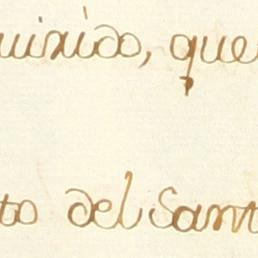 uirido, que
to del Sant